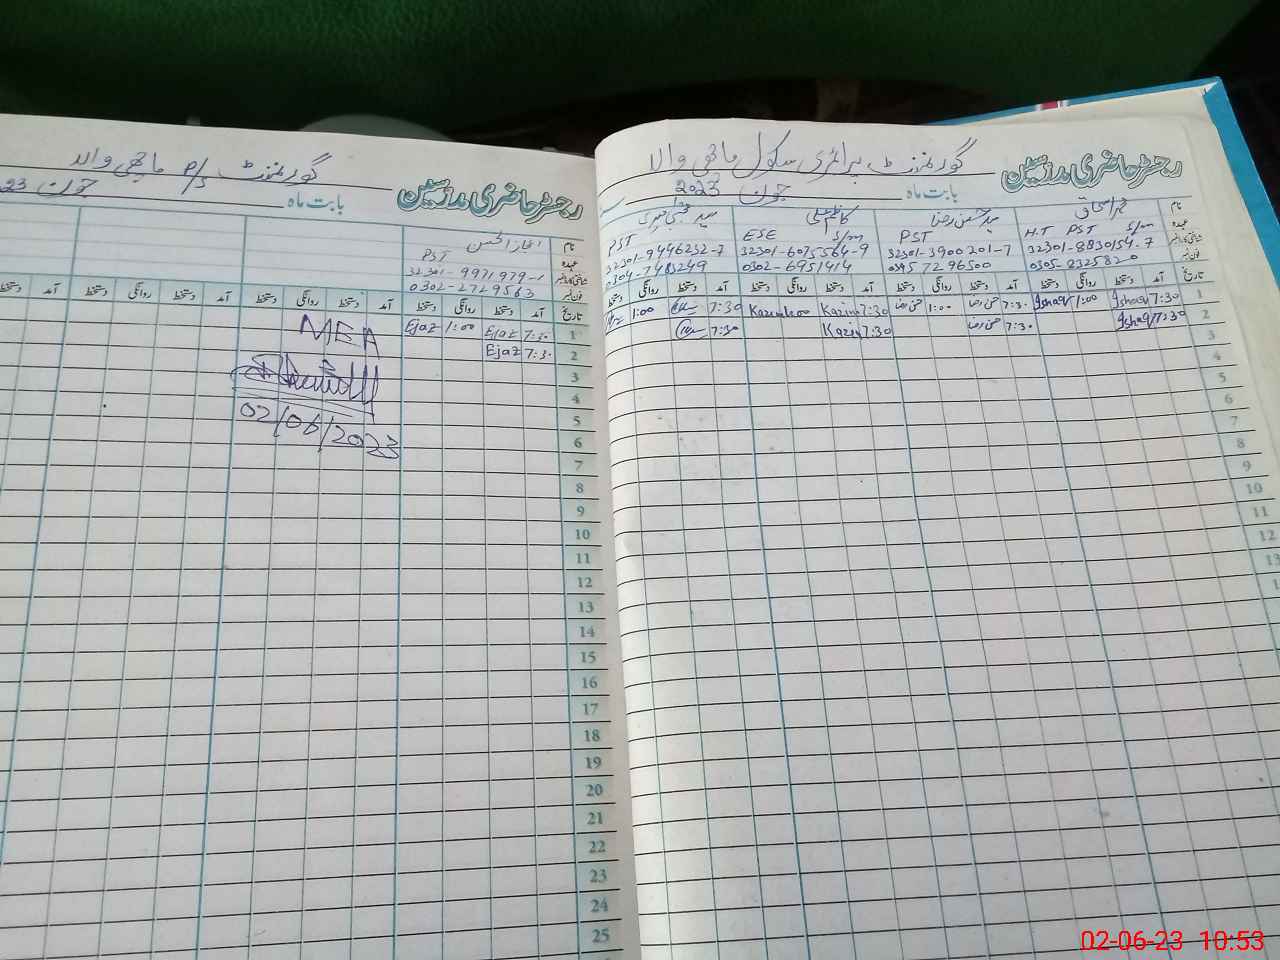 رجسٹر حاضری مدرسین
گورنمنٹ پرائمری سکول ماچھی والا
بابت ماہ جون 2023
نام
عہدہ
شناختی کارڈ نمبر
فون نمبر
H.T PST S/m
32301-8830154-7
0305-8325820
PST
32301-3900201-7
03457296500
ESE S/m
32301-6075564-9
0302-6951414
PST
32301-9446232-7
0304-7483249
تاریخ آمد دستخط روانگی دستخط آمد دستخط روانگی دستخط آمد دستخط روانگی دستخط آمد دستخط روانگی دستخط
1 7:30 Ishaq 1:00 Ishaq 7:30 1:00 7:30 Kazim 1:00 Kazim 7:30 1:00
2 7:30 Ishaq 7:30 7:30 Kazim 7:30
3
4
5
6
7
8
9
10
11
12
13
رجسٹر حاضری مدرسین
گورنمنٹ P/S ماچھی والہ
بابت ماہ جون 23
نام اعجاز الحسن
عہدہ PST
شناختی کارڈ نمبر 32301-9971979-1
فون نمبر 0302-2729563
تاریخ آمد دستخط روانگی دستخط آمد دستخط روانگی دستخط آمد دستخط روانگی دستخط آمد دستخط
1 7:30 Ejaz 1:00 Ejaz
2 7:30 Ejaz
MEA
02/06/2023
3
4
5
6
7
8
9
10
11
12
13
14
15
16
17
18
19
20
21
22
23
24
25
02-06-23 10:53